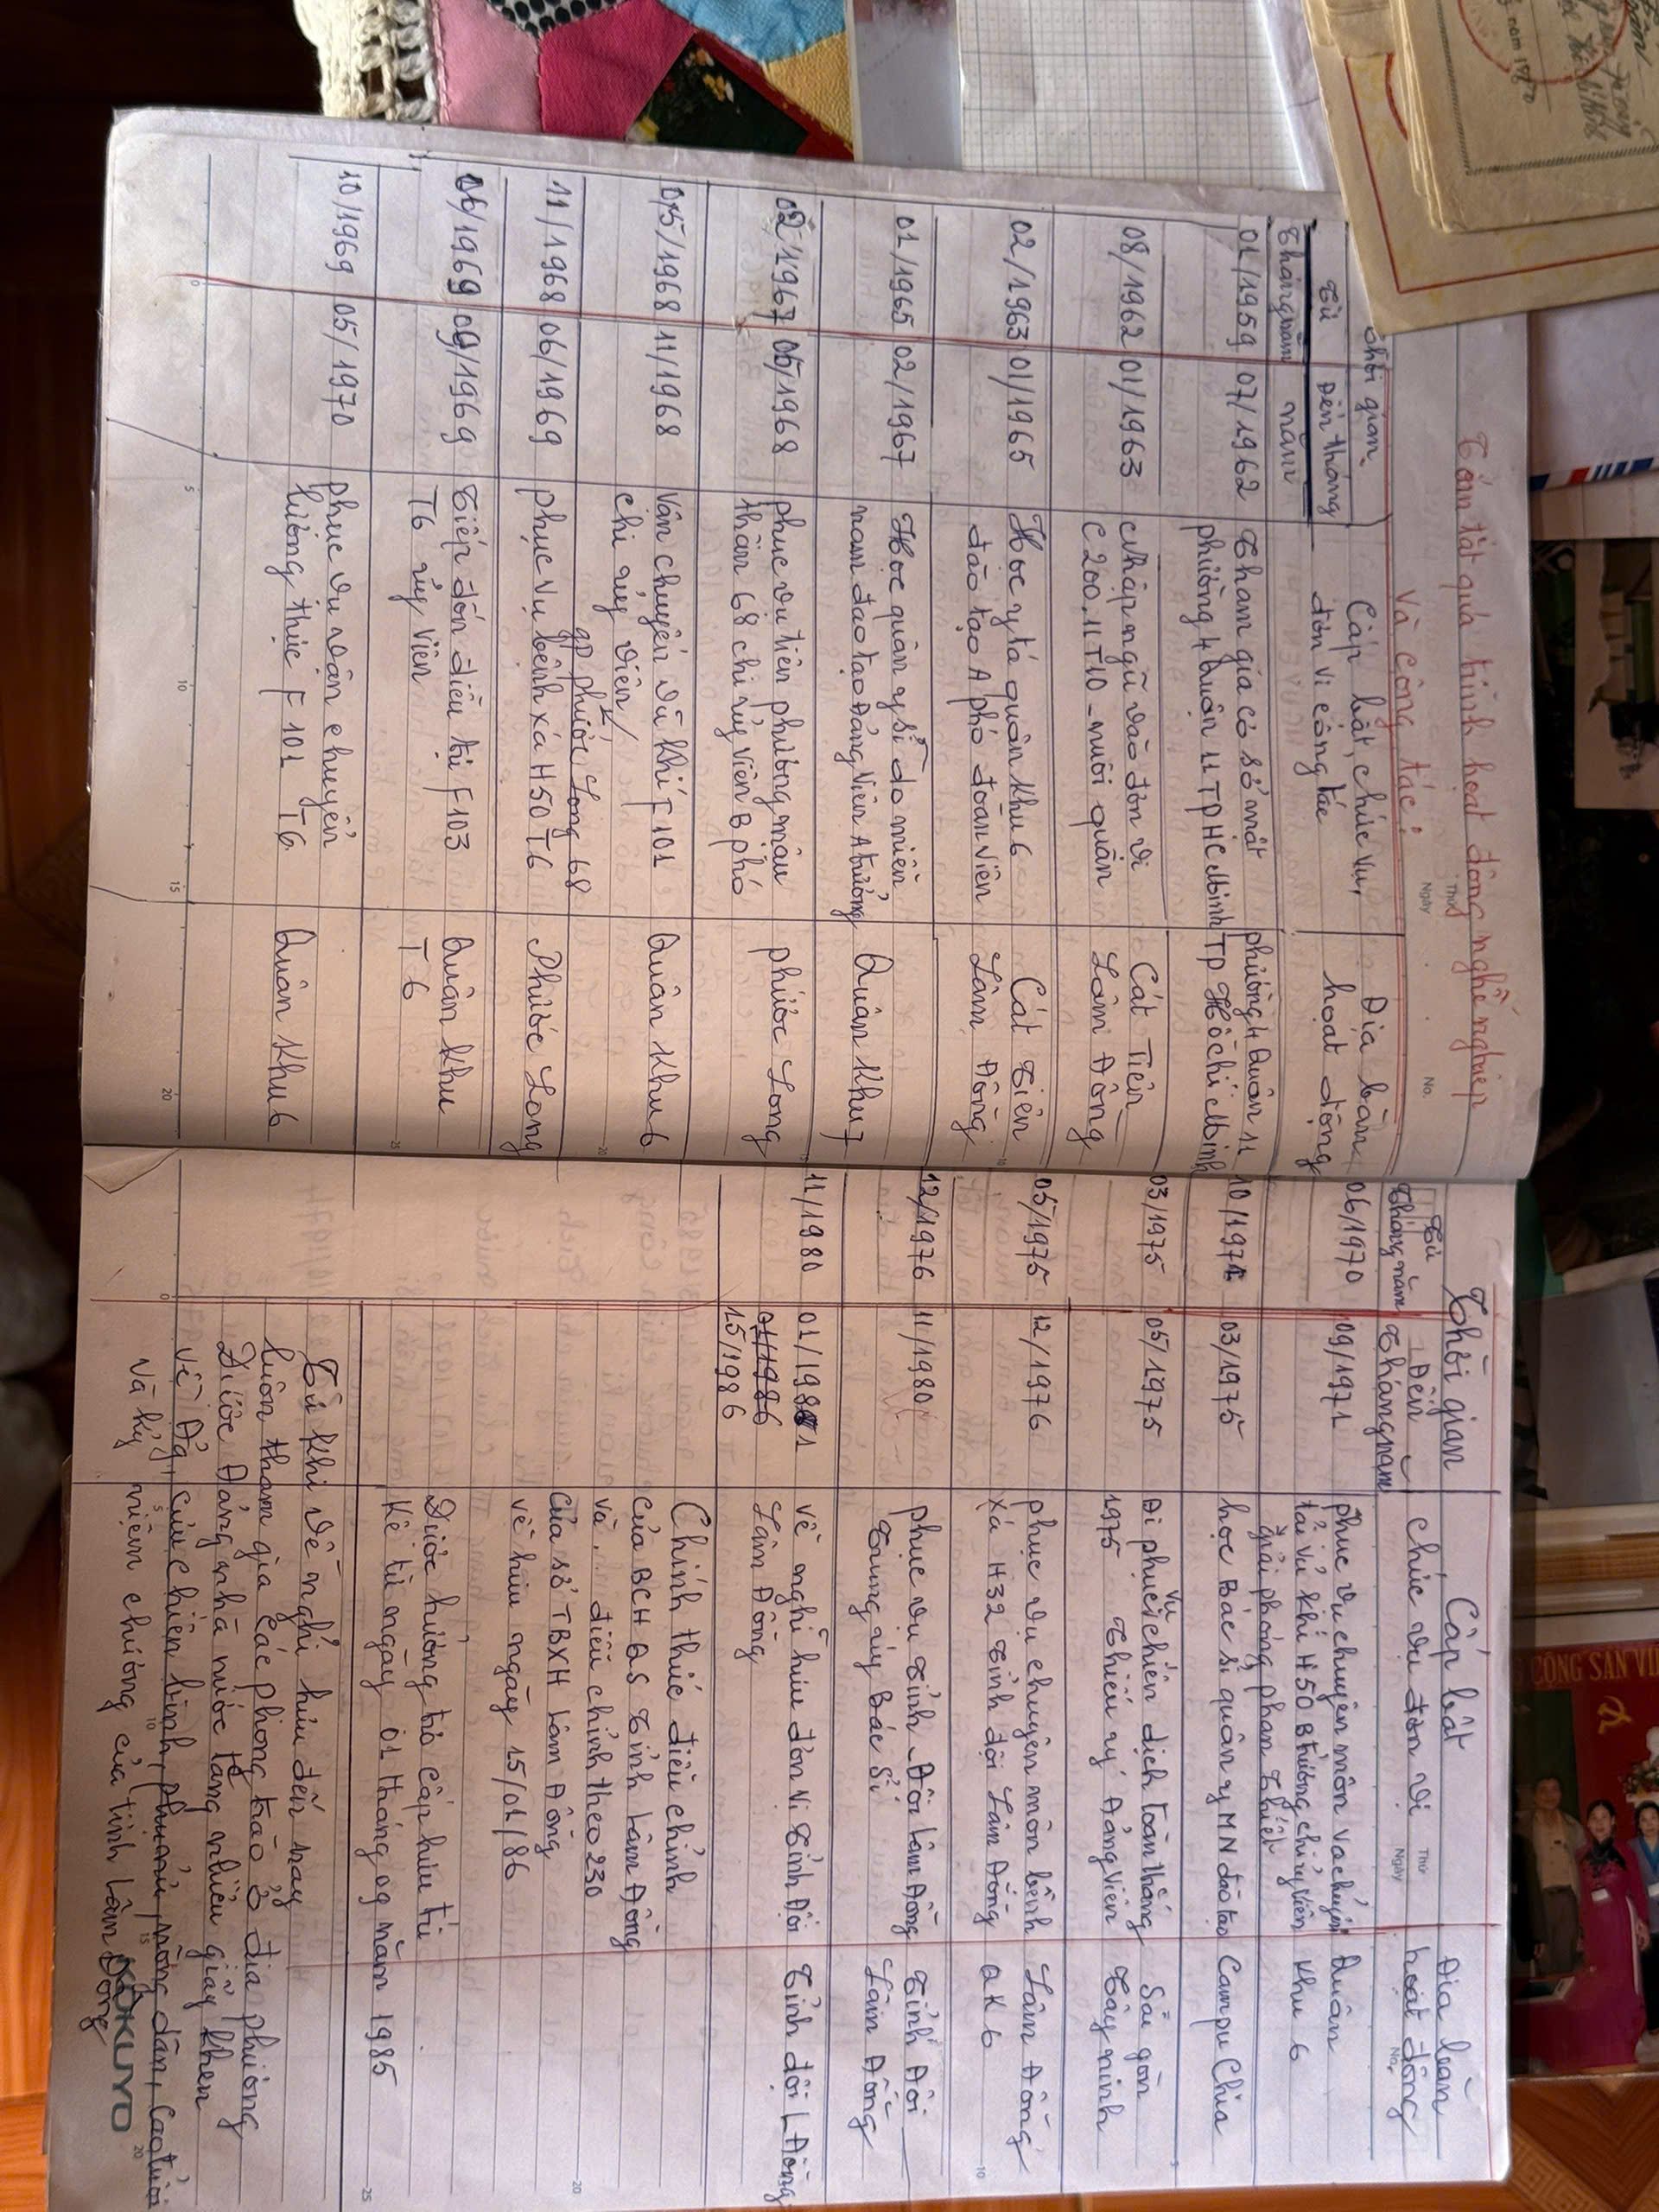 Tóm tắt quá trình hoạt động nghề nghiệp
và công tác:
Thứ
Ngày
No.
Thời gian
Cấp bật, chức vụ,
Địa bàn
Từ
Đến tháng
đơn vi công tác
hoạt động
tháng năm
năm
01/1959 07/1962 Tham gia cở sở mật phường 4 Quận 11
phường 4 huận 11 TP HC Minh TP Hồ chí Minh
08/1962 01/1963 Nhập ngũ vào đơn vi Cát Tiên
C200. 11 T10 - nuôi quân Lâm Đồng
02/1963 01/1965 Học y tá quân khu 6 Cát Tiên
đào tạo A phó đoàn viên Lâm Đồng
01/1965 02/1967 Học quân y sĩ do miền
nam đao tạo Đảng viên A trưởng Quân khu 7
02 1967 05/1968 phục vụ tiên phương mậu phước Long
thân 68 chi ủy viên B phó
05/1968 11/1968 Vân chuyển vũ khí F 101 Quân khu 6
chi ủy viên/
gp phước Long 68
11/1968 06/1969 phục vụ bệnh xá H50 T6 Phước Long
06/1969 09/1969 Tiếp đón điều trị F103 Quân khu
T6 ủy viên T 6
10/1969 05/1970 phục vu vận chuyển
lương thực F 101 T6 Quân khu 6
0 5 10 15 20
Thời gian
Cấp bật
Thứ
Ngày
Địa bàn
Từ
Đến
chức vụ đơn vị
hoạt động
No.
tháng năm
tháng năm
06/1970 09/1971 phục vụ chuyên môn va chuyển Quân
tải vũ khí H50 B trưởng chi ủy viên khu 6
giải phóng phan thiết
10/1971 03/1975 học Bác sĩ quân y MN đào tạo Campu Chia
03/1975 05/1975 Đi phục vụ chiến dịch toàn thắng Sài gòn
1975 Thiếu uý Đảng viên Tây ninh
05/1975 12/1976 phục vụ chuyên môn bệnh Lâm Đồng
xá H32 Tỉnh đội Lâm Đồng QK 6
12/1976 11/1980 phục vụ Tỉnh Đội Lâm Đồng Tỉnh Đội
Trung úy Bác sĩ Lâm Đồng
11/1980 01/1981 Về nghỉ hưu đơn vị Tỉnh Đội Tỉnh đội L Đồng
01/1986 Lâm Đồng
15/1986
Chính thức điều chỉnh
của BCH QS Tỉnh Lâm Đồng
và điều chỉnh theo 230
của sở TBXH Lâm Đồng
về hưu ngày 15/01/86
Được hưởng trỏ cấp hưu trí
kể từ ngày 01 tháng 09 năm 1985
Từ khi về nghỉ hưu đến nay
luôn tham gia các phong trào ở địa phương
Được Đảng nhà nước tặng nhiều giấy khen
về Đảng, cựu chiến binh, phụ nữ, nông dân, cao tuổi
Và kỷ niệm chương của tỉnh Lâm Đồng
KOKUYO
0 5 10 15 20
CỘNG SẢN VI
năm 1970